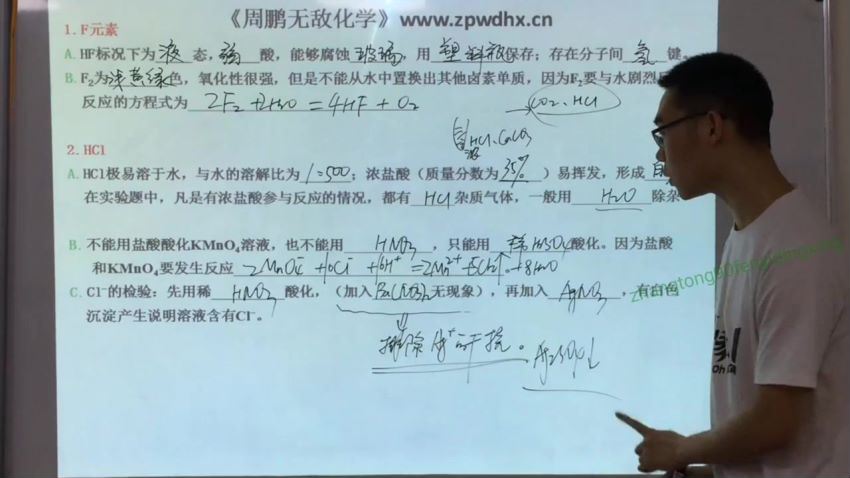 《周鹏无敌化学》www.zpwdhx.cn
1.F元素
A.HF标况下为 液 态，弱 酸，能够腐蚀 玻璃，用 塑料瓶保存；存在分子间 氢 键。
B.F₂为浅黄绿色，氧化性很强，但是不能从水中置换出其他卤素单质，因为F₂要与水剧烈反
反应的方程式为 2F₂+2H₂O=4HF+O₂
CO₂、HCl
HCl、CaCl₂
2.HCl
A.HCl极易溶于水，与水的溶解比为 1:500；浓盐酸（质量分数为 35% ）易挥发，形成
在实验题中，凡是有浓盐酸参与反应的情况，都有 HCl 杂质气体，一般用 H₂O 除杂
B.不能用盐酸酸化KMnO₄溶液，也不能用 HNO₃ ，只能用 稀H₂SO₄酸化。因为盐酸
和KMnO₄要发生反应 2MnO₄⁻+10Cl⁻+16H⁺=2Mn²⁺+5Cl₂↑+8H₂O
C.Cl⁻的检验：先用稀 HNO₃ 酸化，（加入Ba(NO₃)₂无现象），再加入 AgNO₃ ，有白色
沉淀产生说明溶液含有Cl⁻。
排除 干扰。
Ag₂SO₄↓